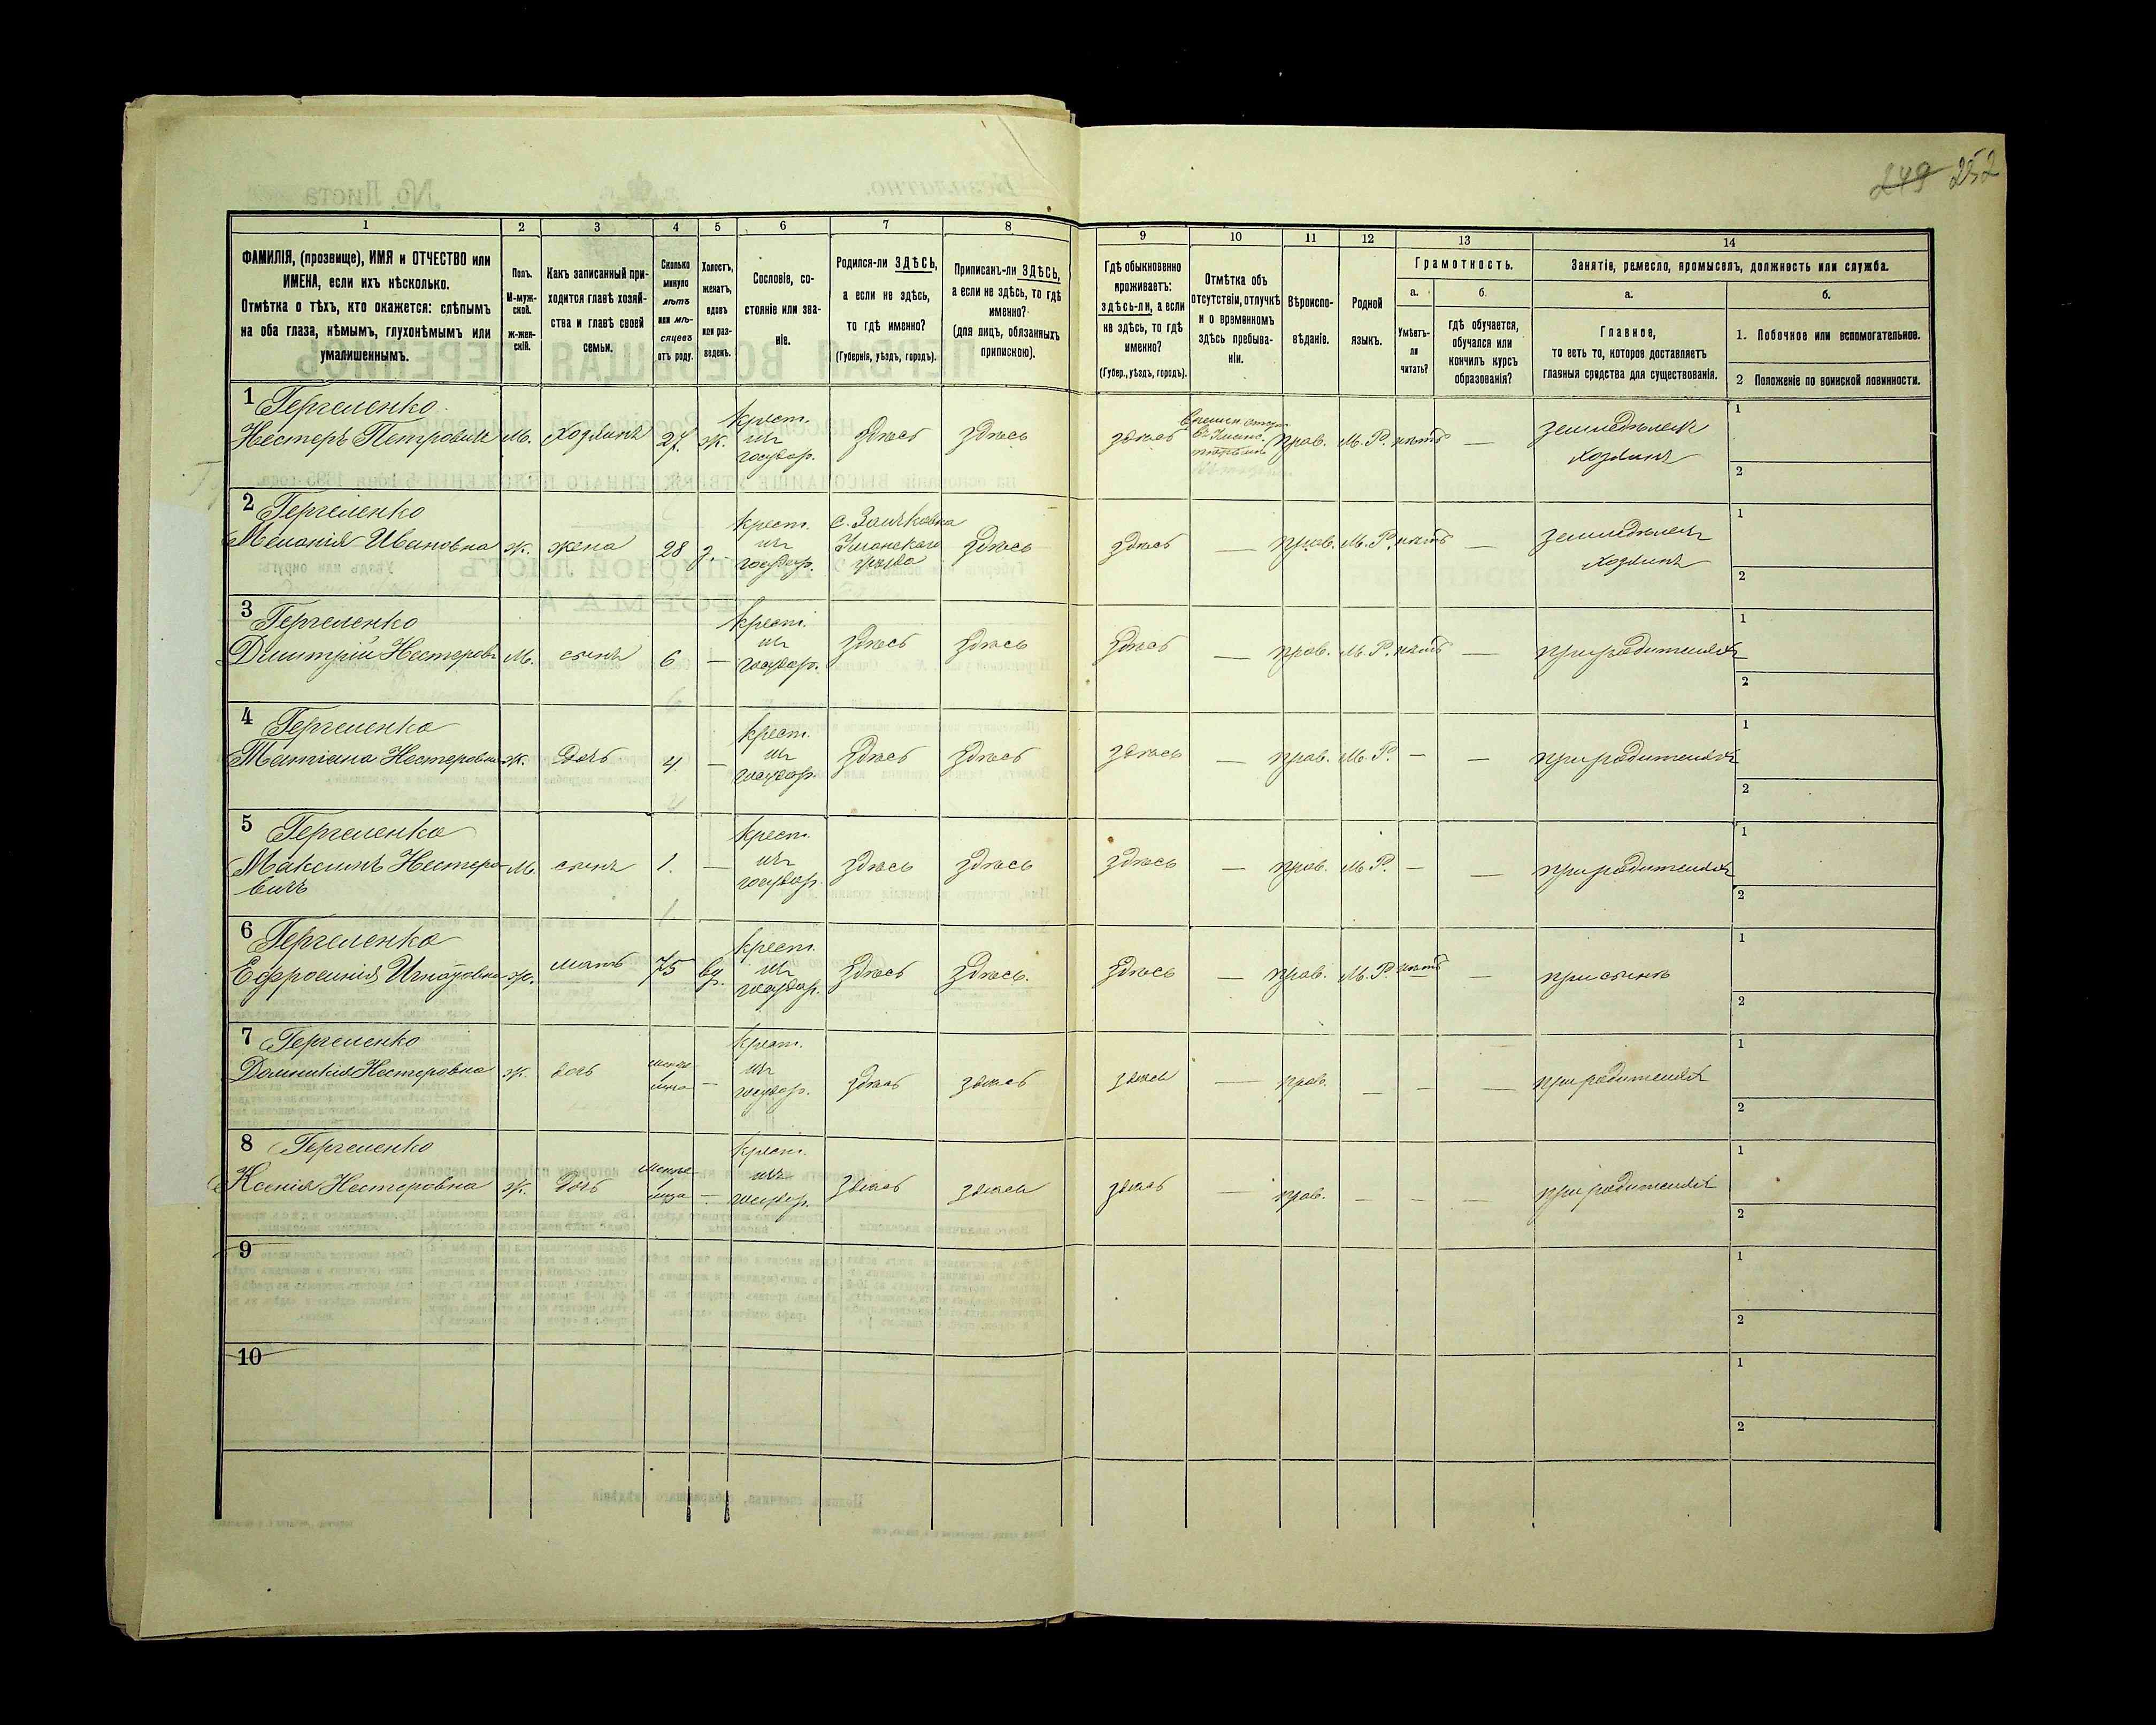 249 252
1 2 3 4 5 6 7 8 9 10 11 12 13 14
ФАМИЛІЯ, (прозвище), ИМЯ и ОТЧЕСТВО или
ИМЕНА, если ихъ нѣсколько.
Отмѣтка о тѣхъ, кто окажется: слѣпымъ
на оба глаза, нѣмымъ, глухонѣмымъ или
умалишеннымъ.
Полъ.
М-муж-
ской.
ж-жен-
скій.
Какъ записанный при-
ходится главѣ хозяй-
ства и главѣ своей
семьи.
Сколько
минуло
лѣтъ
или мѣ-
сяцевъ
отъ роду.
Холостъ,
женатъ,
вдовъ
или раз-
веденъ.
Сословіе, со-
стояніе или зва-
ніе.
Родился-ли ЗДѢСЬ,
а если не здѣсь,
то гдѣ именно?
(Губернія, уѣздъ, городъ).
Приписанъ-ли ЗДѢСЬ,
а если не здѣсь, то гдѣ
именно?
(для лицъ, обязанныхъ
припискою).
Гдѣ обыкновенно
проживаетъ:
здѣсь-ли, а если
не здѣсь, то гдѣ
именно?
(Губер., уѣздъ, городъ).
Отмѣтка объ
отсутствіи, отлучкѣ
и о временномъ
здѣсь пребыва-
ніи.
Вѣроиспо-
вѣданіе.
Родной
языкъ.
Грамотность.
а.
Умѣетъ-
ли
читать?
б.
Гдѣ обучается,
обучался или
кончилъ курсъ
образованія?
Занятіе, ремесло, промыселъ, должность или служба.
а.
Главное,
то есть то, которое доставляетъ
главныя средства для существованія.
б.
1. Побочное или вспомогательное.
2 Положеніе по воинской повинности.
1 Гергеленко
Нестеръ Петровичъ М. хозяинъ 27 ж. крест. изъ государ. здѣсь здѣсь здѣсь прав. М. Р. нѣтъ — земледѣлецъ хозяинъ
1
2
2 Гергеленко
Меланія Ивановна ж. жена 28 з. крест. изъ государ. с. Зачковка Уманскаго уѣзда здѣсь здѣсь — прав. М. Р. нѣтъ — земледѣлецъ хозяинъ
1
2
3 Гергеленко
Димитрій Нестеровъ М. сынъ 6 — крест. изъ государ. здѣсь здѣсь здѣсь — прав. М. Р. нѣтъ — при родителяхъ
1
2
4 Гергеленко
Татіана Нестеровна ж. дочь 4 — крест. изъ государ. здѣсь здѣсь здѣсь — прав. М. Р. — — при родителяхъ
1
2
5 Гергеленко
Максимъ Нестеро-
вичъ М. сынъ 1. — крест. изъ государ. здѣсь здѣсь здѣсь — прав. М. Р. — — при родителяхъ
1
2
6 Гергеленко
Ефросинія Игнатовна ж. мать 75 вд. крест. изъ государ. здѣсь здѣсь. здѣсь — прав. М. Р. нѣтъ — при сынѣ
1
2
7 Гергеленко
Домникія Нестеровна ж. дочь менѣе 1 мца — крест. изъ государ. здѣсь здѣсь здѣсь — прав. — — — при родителяхъ
1
2
8 Гергеленко
Ксенія Нестеровна ж. дочь менѣе 1 мца — крест. изъ государ. здѣсь здѣсь здѣсь — прав. — — — при родителяхъ
1
2
9
1
2
10
1
2